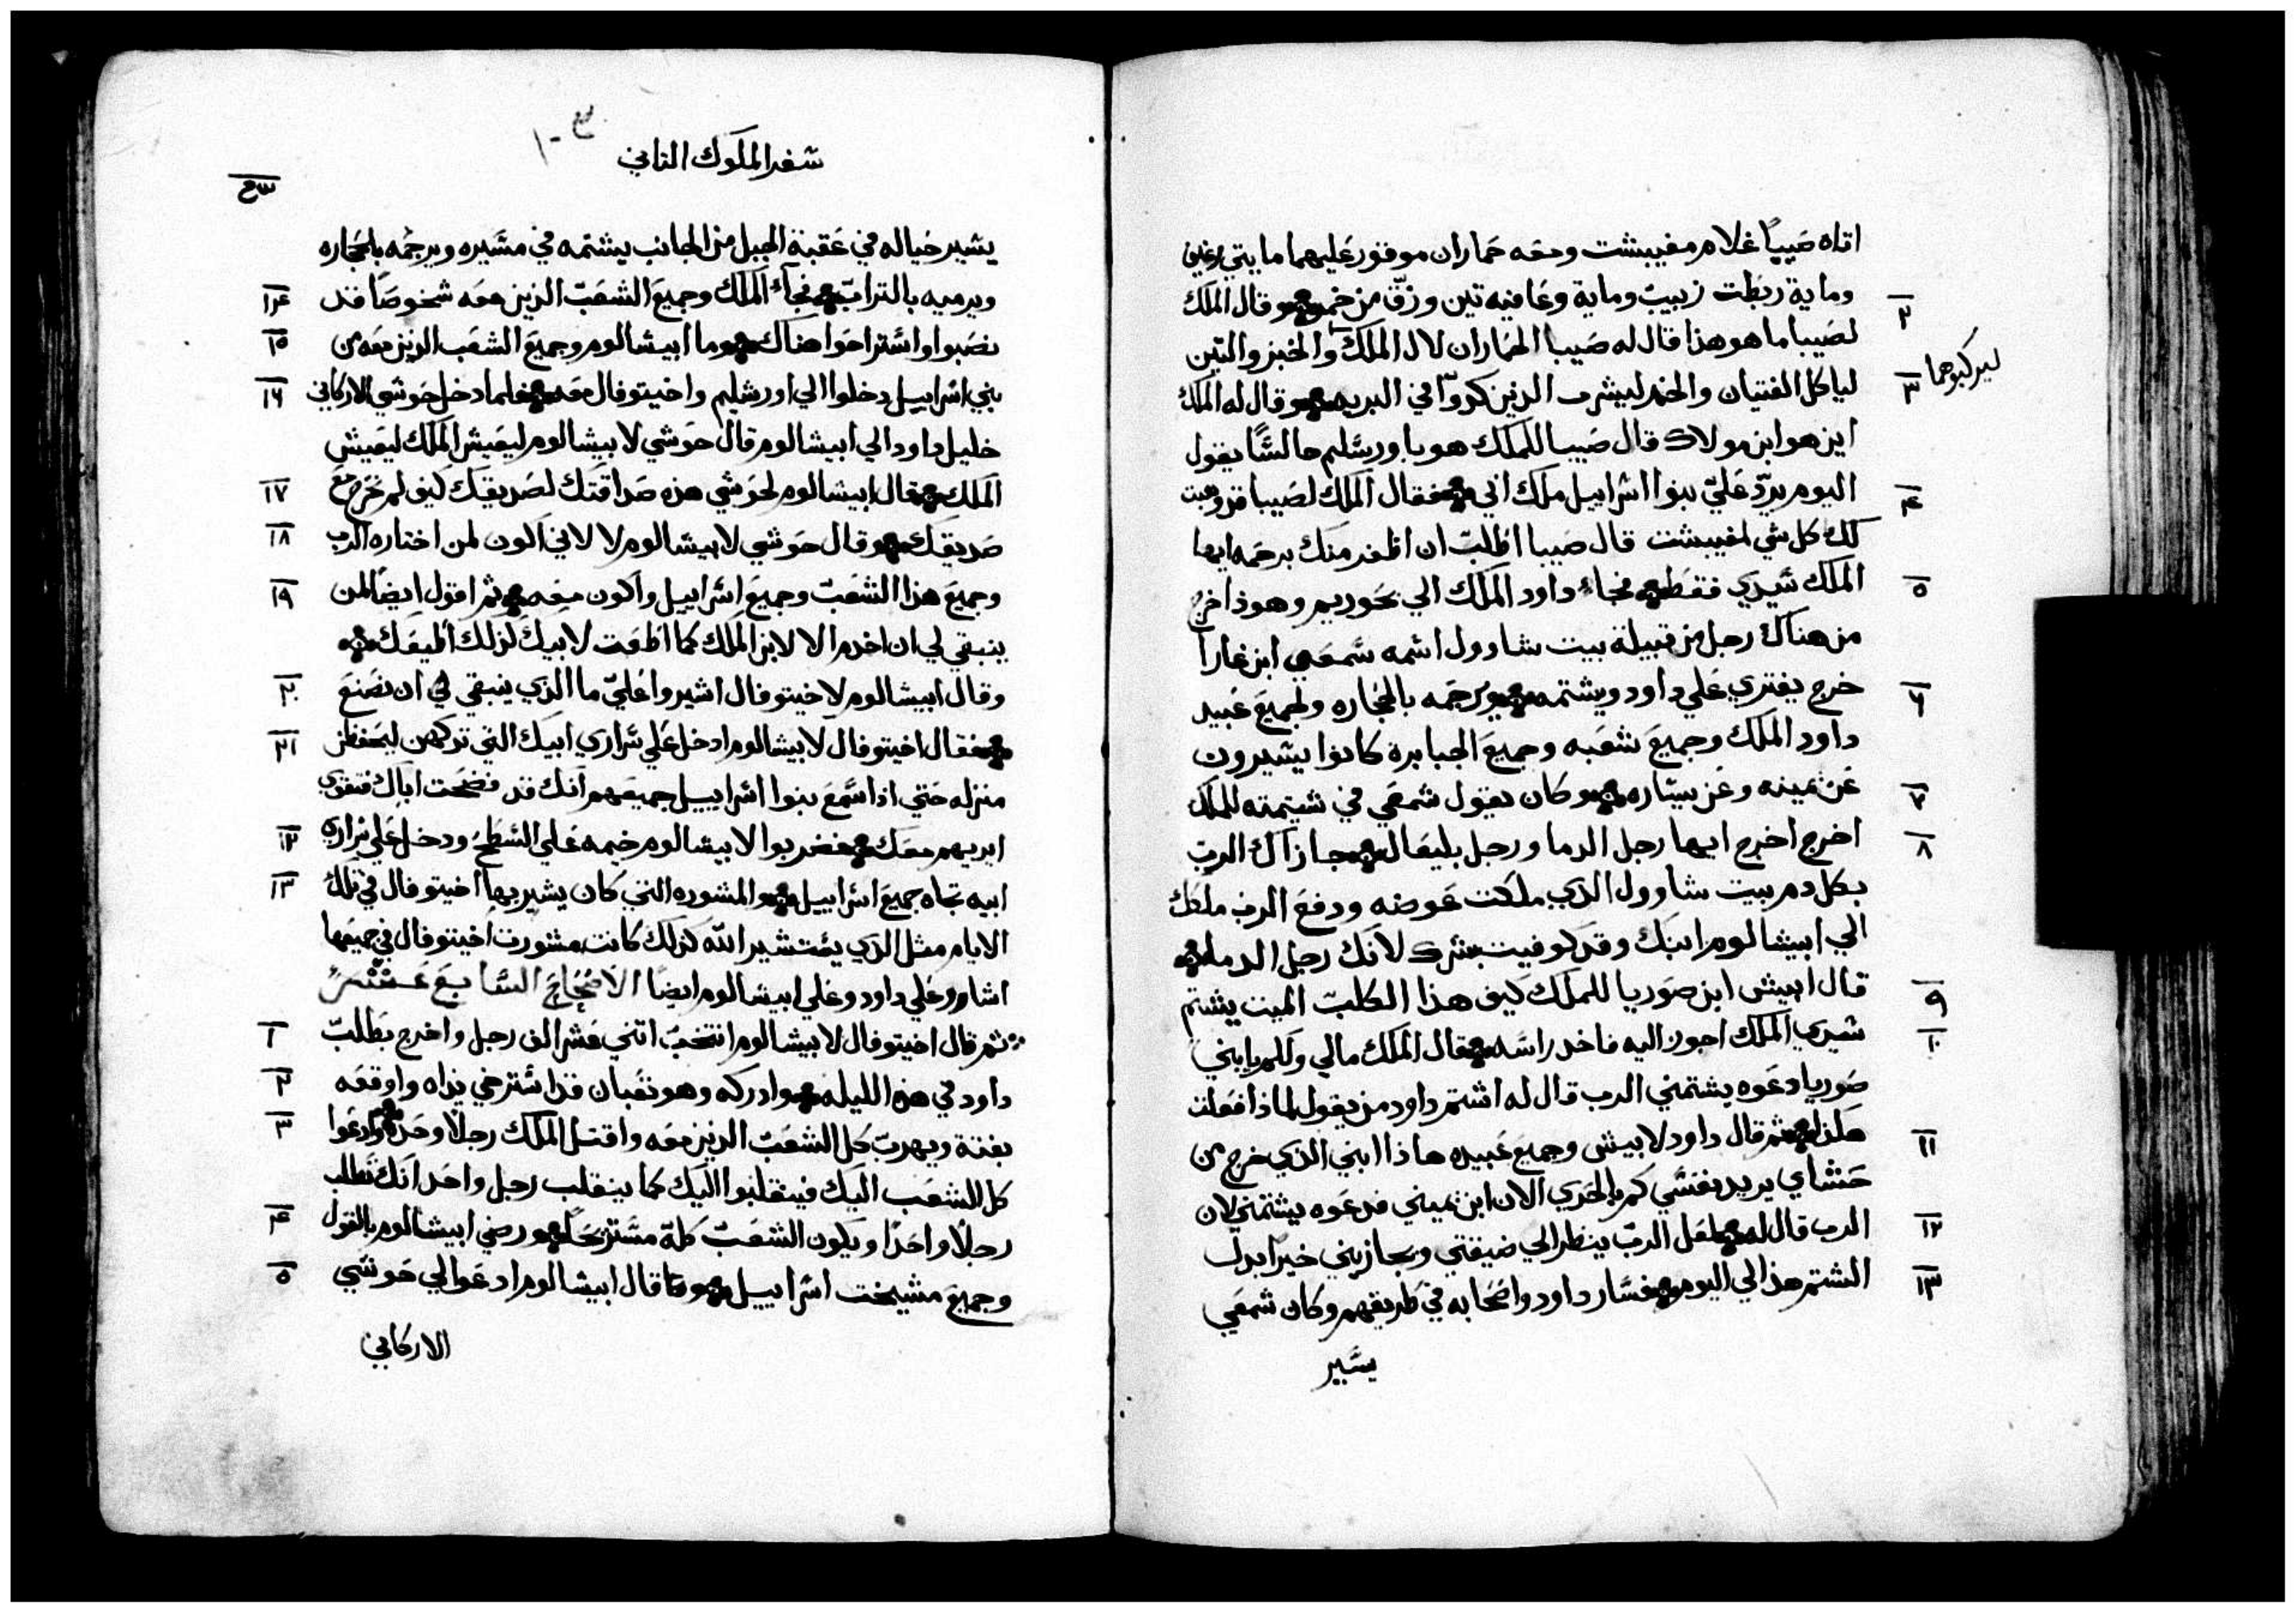 اتاه صيبا غلام مفيبشت ومعه حماران موقور عليهما مايتي رغيف
٢ وماية ربطت زبيب وماية وعافيه تين وزق من خمر وقال الملك
لصيبا ما هو هذا قال له صيبا الحماران لال الملك والخبز والتين
ليركبوهما
٣ لياكل الفتيان والخمر ليشرب الذين كدوا في البريه وقال له الملك
اين هو ابن مولاك قال صيبا للملك هو باورشليم جالسا يقول
٤ اليوم يرد علي بنوا اسراييل ملك ابي فقال الملك لصيبا قد وهبت
لك كل شي لمفيبشت قال صيبا اطلب ان اظفر منك برحمه ايها
٥ الملك سيدي فقط فجاء داود الملك الي بحوريم وهوذا خرج
من هناك رجل من قبيلة بيت شاوول اسمه شمعي ابن غارا
٦ خرج يفتري علي داود ويشتمه ويرجمه بالحجاره ولجميع عبيد
داود الملك وجميع شعبه وجميع الجبابرة كانوا يسيرون
٧ عن يمينه وعن يساره وكان يقول شمعي في شتيمته للملك
٨ اخرج اخرج ايها رجل الدما ورجل بليعال جازاك الرب
بكل دم بيت شاوول الذي ملكت عوضه ودفع الرب ملكك
الي ابيشالوم ابنك وقد كوفيت بشرك لانك رجل الدما
٩ قال ابيش ابن صوريا للملك كيف هذا الكلب الميت يشتم
١٠ سيدي الملك اجوز اليه فاخد راسه فقال الملك مالي ولكم يا بني
صوريا دعوه يشتمني الرب قال له اشتم داود من يقول لماذا فعلت
١١ هكذا ثم قال داود لابيش وجميع عبيده هاذا ابني الذي خرج من
حشاي يريد نفسي كم بالحري الان ابن يميني فدعوه يشتمني لان
١٢ الرب قال له لعل الرب ينظر الي ضيقتي ويجازيني خيرا بدل
١٣ الشتم هذا لي اليوم فسار داود واصحابه في طريقهم وكان شمعي
يسير
سفر الملوك الثاني
يسير حياله في عقبة الجبل من الجانب يشتمه في مسيره ويرجمه بالحجاره
١٤ ويرميه بالتراب فجاء الملك وجميع الشعب الذين معه شخوصا قد
١٥ نصبوا واستراحوا هناك وما ابيشالوم وجميع الشعب الذين معه من
١٦ بني اسراييل دخلوا الي اورشليم واخيتوفال معه فلما دخل حوشي الاركاني
خليل داود الي ابيشالوم قال حوشي لابيشالوم ليعيش الملك ليعيش
١٧ الملك فقال ابيشالوم لحوشي هذه صداقتك لصديقك كيف لم تخرج مع
١٨ صديقك وقال حوشي لابيشالوم لا لاني اكون لمن اختاره الرب
١٩ وجميع هذا الشعب وجميع اسراييل واكون معه ثم اقول ايضا لمن
ينبقي لي ان اخدم الا لابن الملك كما اطعت لابيك كذلك اطيعك
٢٠ وقال ابيشالوم لاخيتوفال اشيروا علي ما الذي ينبقي لي ان نصنع
٢١ فقال اخيتوفال لابيشالوم ادخل علي سراري ابيك التي تركهن ليحفظن
منزله حتي اذا سمع بنوا اسراييل جميعهم انك قد فضحت اباك فتقوي
٢٢ ايديهم معك فضربوا لابيشالوم خيمه علي السطح ودخل علي سراره
٢٣ ابيه تجاه جميع اسراييل والمشوره التي كان يشير بها اخيتوفال في تلك
الايام مثل الذي يستشير الله كذلك كانت مشورت اخيتوفال في جميعها
اشار علي داود وعلي ابيشالوم ايضا الاصحاح السابع عشر
١ ثم قال اخيتوفال لابيشالوم انتخب اثني عشر الف رجل واخرج بطلب
٢ داود في هذه الليله وادركه وهو تعبان قد استرخي يداه واوقعه
٣ بغتة ويهرب كل الشعب الذين معه واقتل الملك رجلا وحده وادعوا
كل الشعب اليك فينقلبوا اليك كما ينقلب رجل واحد انك تطلب
٤ رجلا واحدا ويكون الشعب كله مستريحا ورضي ابيشالوم بالقول
٥ وجميع مشيخت اسراييل وقال ابيشالوم ادعوا لي حوشي
الاركاني